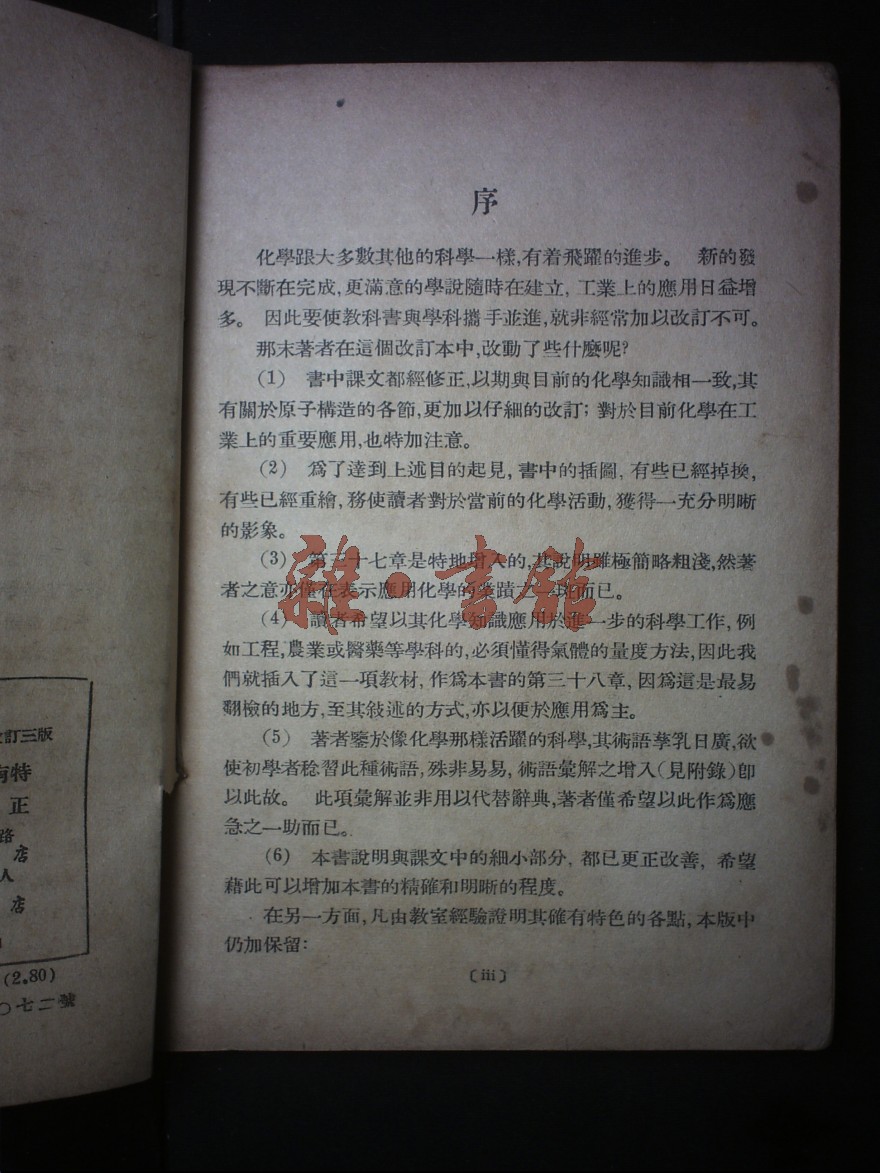 序
化學跟大多數其他的科學一樣,有着飛躍的進步。 新的發
現不斷在完成,更滿意的學說隨時在建立, 工業上的應用日益增
多。 因此要使教科書與學科攜手並進,就非經常加以改訂不可。
那末著者在這個改訂本中,改動了些什麼呢?
(1) 書中課文都經修正,以期與目前的化學知識相一致,其
有關於原子構造的各節,更加以仔細的改訂; 對於目前化學在工
業上的重要應用,也特加注意。
(2) 爲了達到上述目的起見, 書中的插圖, 有些已經掉換,
有些已經重繪,務使讀者對於當前的化學活動,獲得一充分明晰
的影象。
(3) 第三十七章是特地增入的,其說明雖極簡略粗淺,然著
者之意亦僅在表示應用化學的業蹟之一斑而已。
(4) 讀者希望以其化學知識應用於進一步的科學工作, 例
如工程,農業或醫藥等學科的,必須懂得氣體的量度方法,因此我
們就插入了這一項教材, 作爲本書的第三十八章, 因爲這是最易
翻檢的地方,至其敍述的方式,亦以便於應用爲主。
(5) 著者鑒於像化學那樣活躍的科學,其術語孳乳日廣,欲
使初學者稔習此種術語, 殊非易易, 術語彙解之增入(見附錄)卽
以此故。 此項彙解並非用以代替辭典,著者僅希望以此作爲應
急之一助而已。
(6) 本書說明與課文中的細小部分, 都已更正改善, 希望
藉此可以增加本書的精確和明晰的程度。
在另一方面,凡由教室經驗證明其確有特色的各點,本版中
仍加保留:
(iii)
雜·書館
訂三版
特
正
路
店
人
店
(2.80)
〇七二號